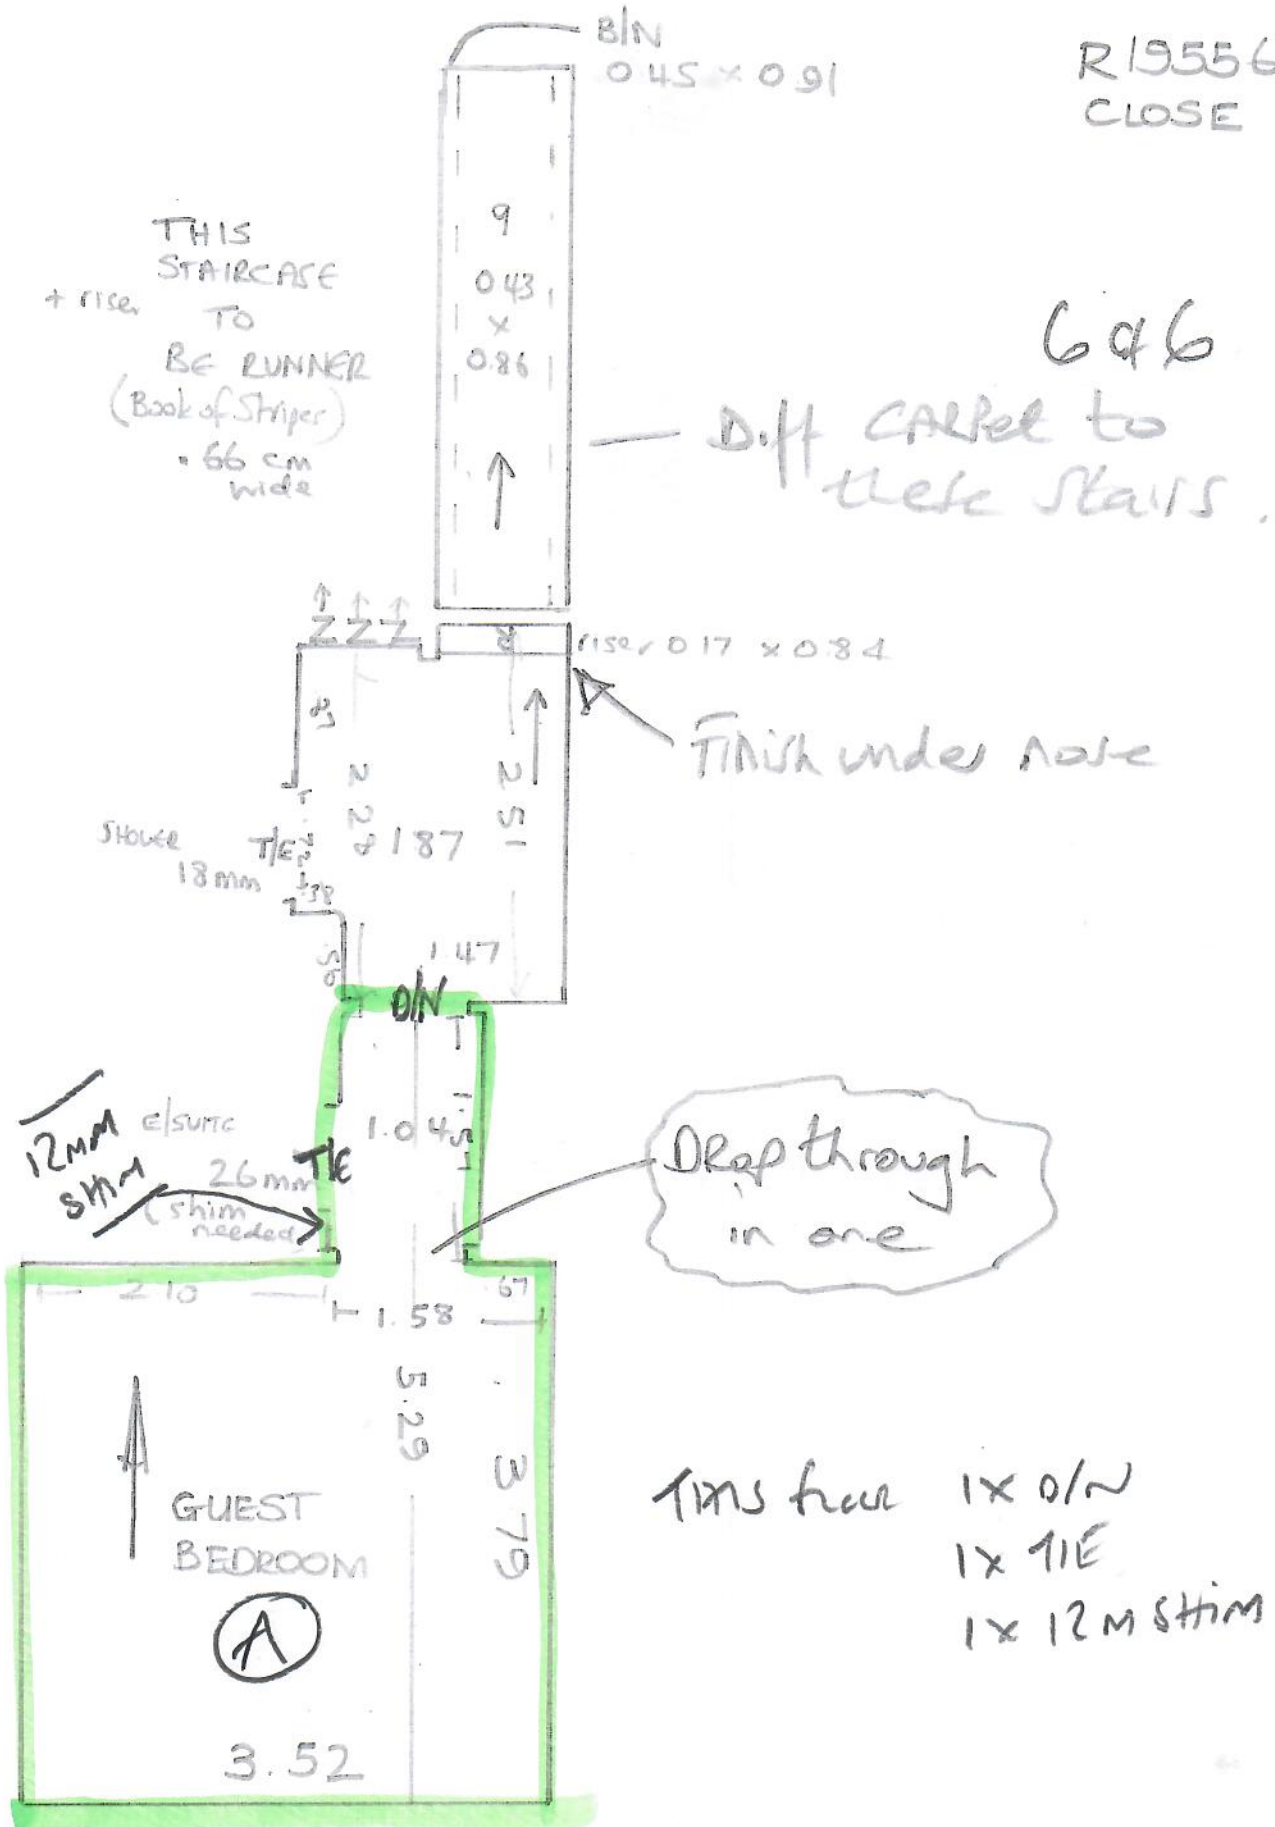 B/N
0.45 × 0.91
R19556
CLOSE
THIS
STAIRCASE
+ riser TO
BE RUNNER
(Book of Stripes)
.66 cm
wide
9
0.43
×
0.86
6 of 6
Diff CARPet to
these Stairs.
Z Z Z
R
riser 0.17 × 0.84
Finish under nose
.87
2.28
2.51
1.87
SHOWER
18mm
T/E
.38
.56
1.47
D/N
12MM
SHIM
E/SUITE
26mm
(shim
needed)
T/E
1.04
Drop through
in one
2.10
1.58
.67
5.29
3.79
GUEST
BEDROOM
A
3.52
1X D/N
1X T/E
1X 12M SHIM